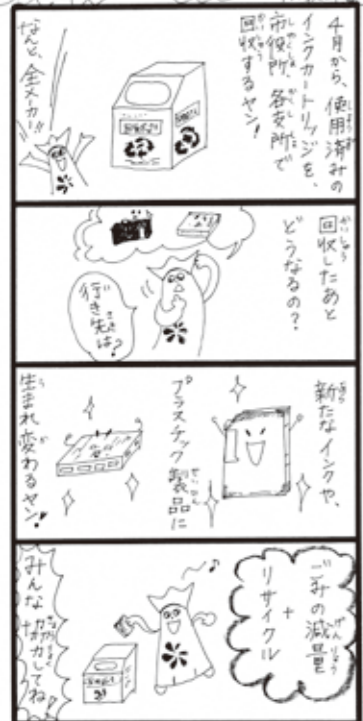 4月から、使用済みの
インクカートリッジを、
市役所、各支所で
回収するヤン！
なんと、全メーカー!!
回収したあと
どうなるの？
行き先は？
新たなインクや、
プラスチック製品に
生まれ変わるヤン！
ごみの減量
+
リサイクル
みんな協力してね！